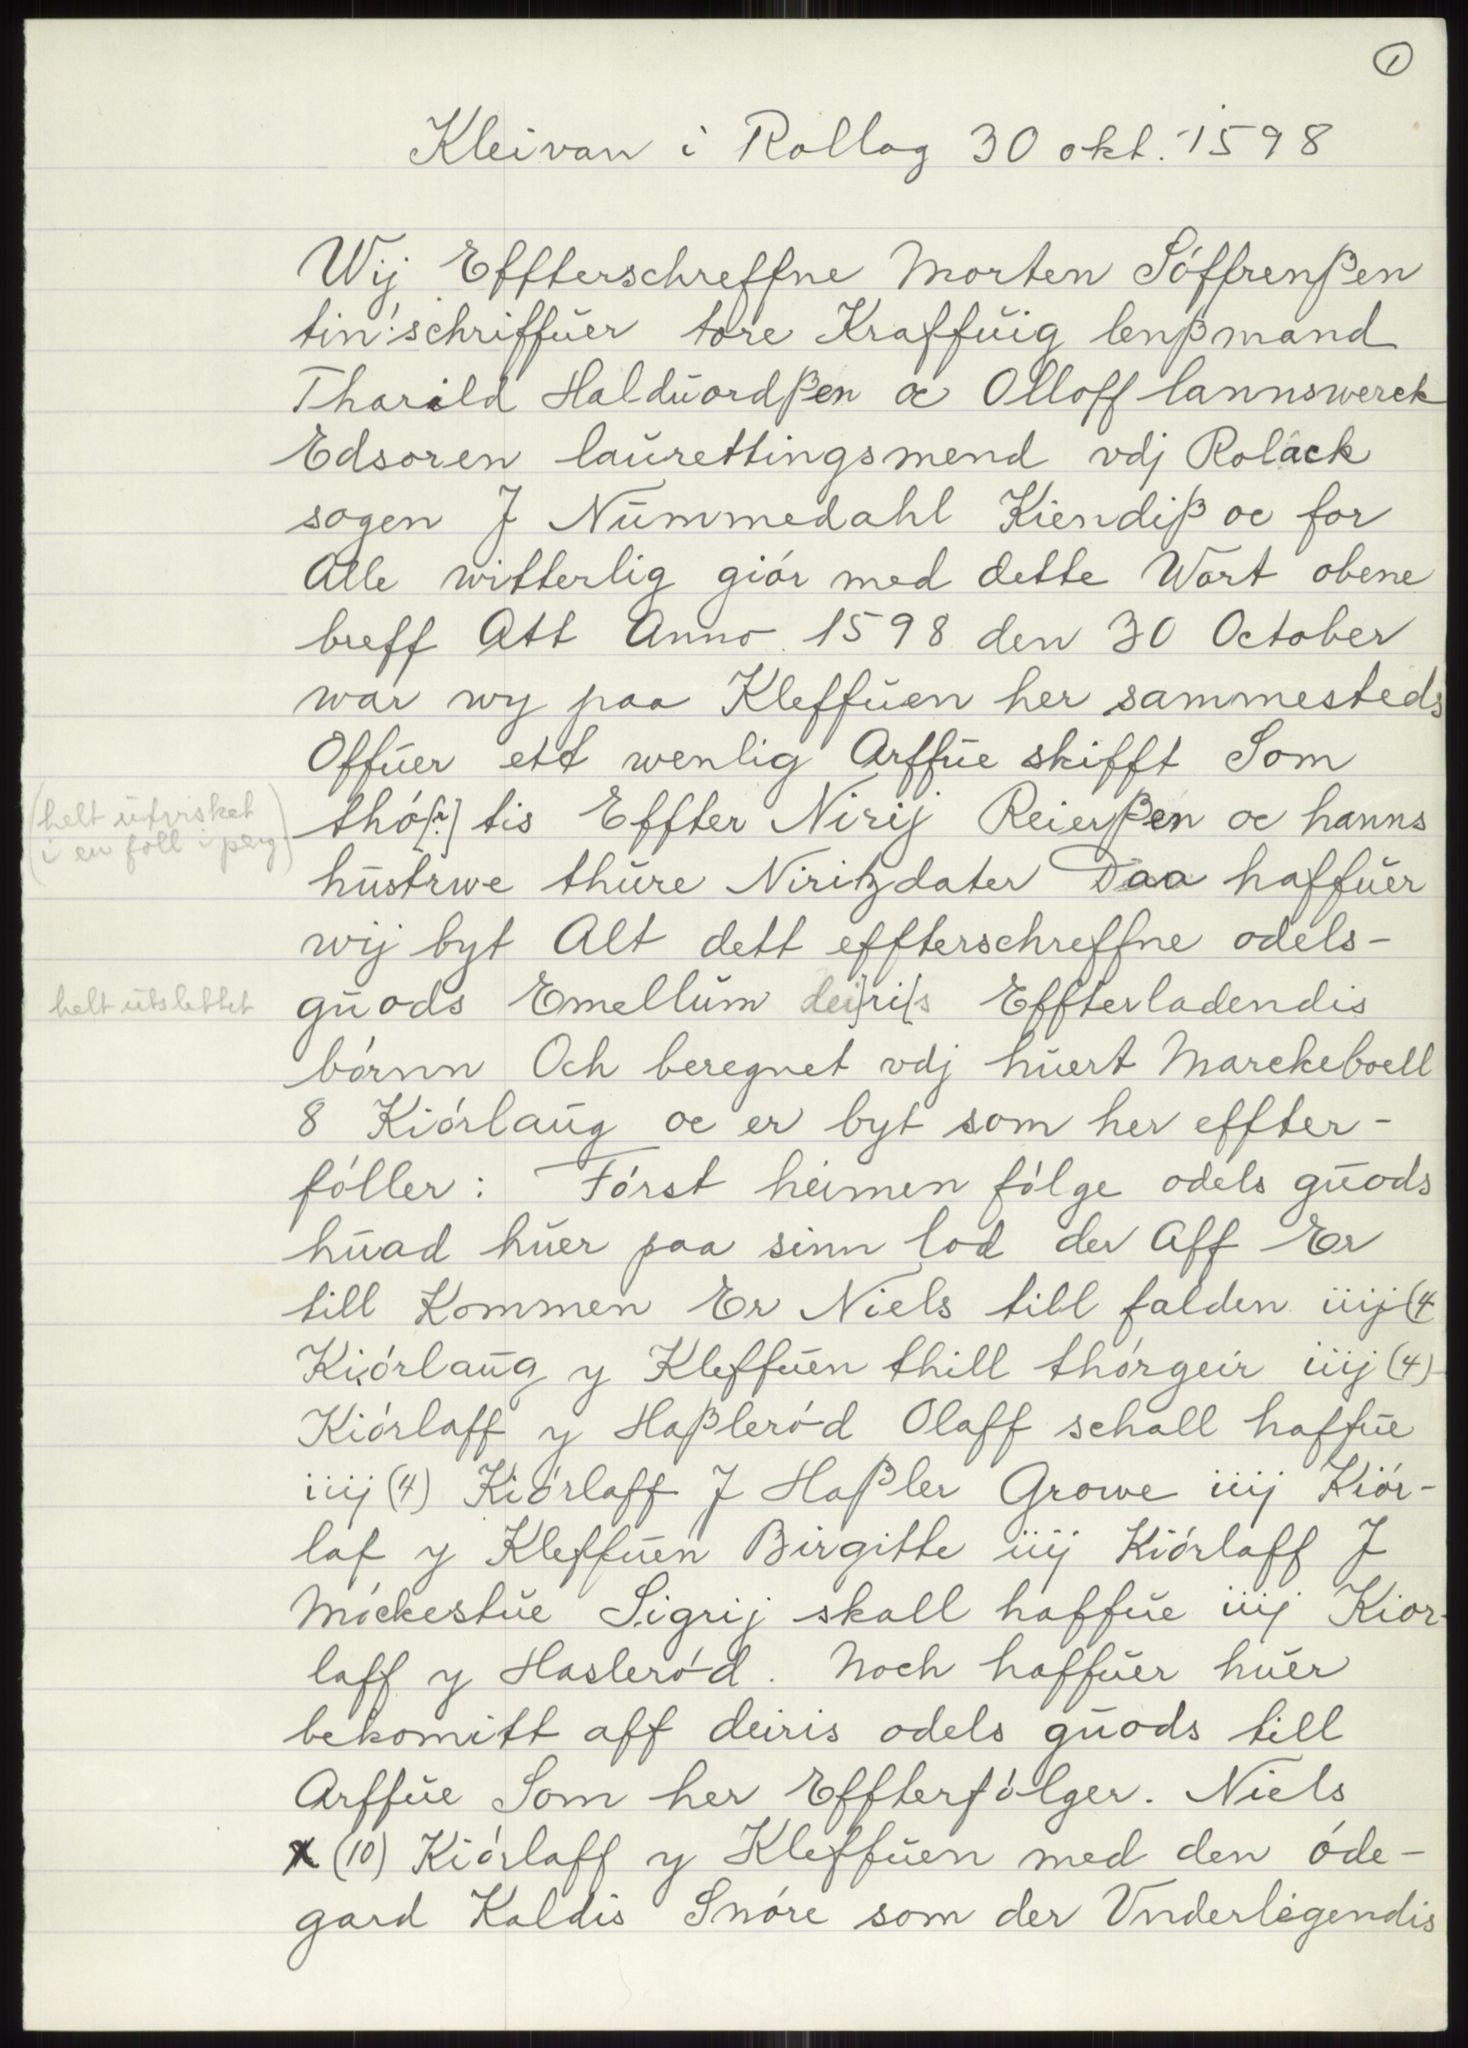 1
Kleivan i Rollag 30 okt. 1598
Wij Effterschreffne Morten Sóffrenßen
tin:schriffŭer tore Kraffŭig lenßmand
Tharald Haldŭordßen oc Olloff lannswerck
Edsoren laŭrettingsmend vdj Rolack
sogen J Nŭmmedahl Kiendiß oc for
Alle witterlig giór med dette Wort obene
breff Att Anno 1598 den 30 October
war wy paa Kleffŭen her sammesteds
Offŭer ett wenlig Arffŭe skifft Som
(helt ŭtvisket
i en fold i perg)
thó[?] tis Effter Nirij Reierßen oc hanns
hŭstrwe thŭre Niritzdater Daa haffŭer
wij byt Alt dett effterschreffne odels-
helt ŭtslettet
gŭods Emellŭm dei}ri{s Effterladendis
bórnn Och beregnet vdj hŭert Marckeboell
8 Kiórlaŭg oc er byt som her effter-
fóller: Fórst heimen fólge odels gŭods
hŭad hŭer paa sinn lod der Aff Er
till Kommen Er Niels till falden iiij (4
Kiórlaŭg y Kleffŭen thill thórgeir iiij (4)
Kiórlaff y Haßleród Olaff schall haffŭe
iiij (4) Kiórlaff J Haßler Growe iiij Kiór-
laf y Kleffŭen Birgitte iiij Kiórlaff J
Móckestŭe Sigrij skall haffŭe iiij Kior-
laff y Hasleród. Noch haffŭer hŭer
bekomitt aff deiris odels gŭods till
Arffŭe Som her Effterfólger. Niels
x (10) Kiórlaff y Kleffŭen med den óde-
gard Kaldis Snóre som der Vnderlegendis